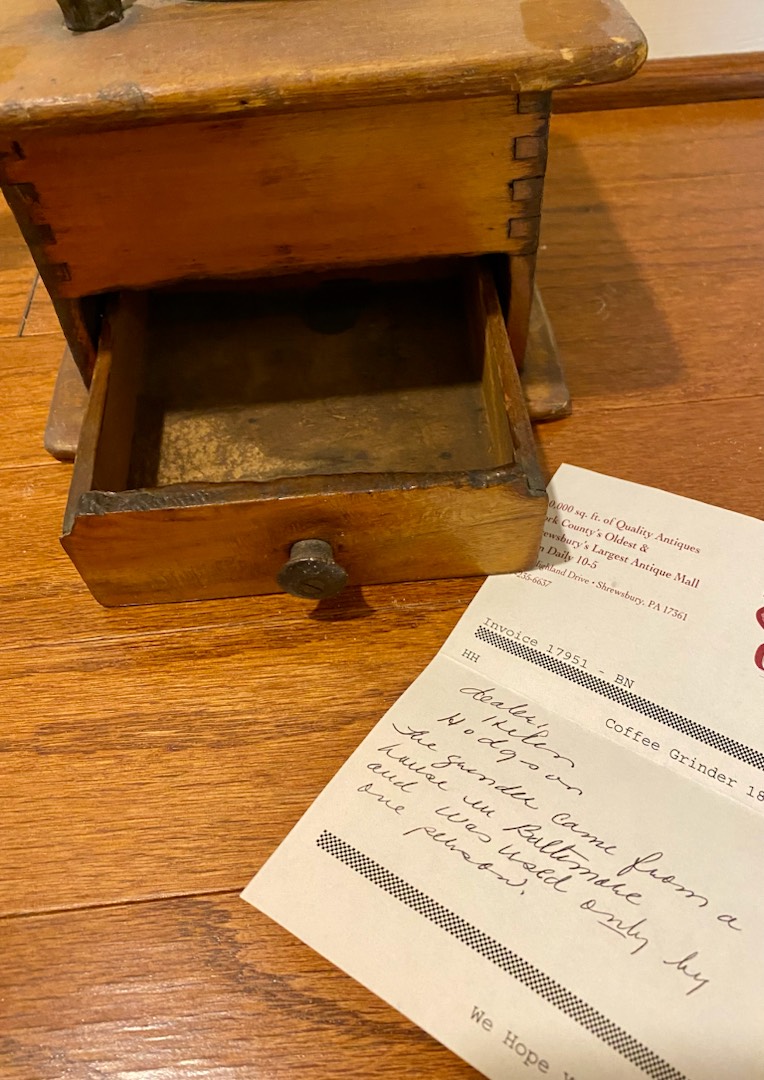 0,000 sq. ft. of Quality Antiques
ork County's Oldest &
ewsbury's Largest Antique Mall
n Daily 10-5
ighland Drive • Shrewsbury, PA 17361
235-6637
Invoice 17951 - BN
HH
Coffee Grinder 18
dealer:
Helen
Hodgson
The grinder came from a
house in Baltimore
and was used only by
one person.
We Hope